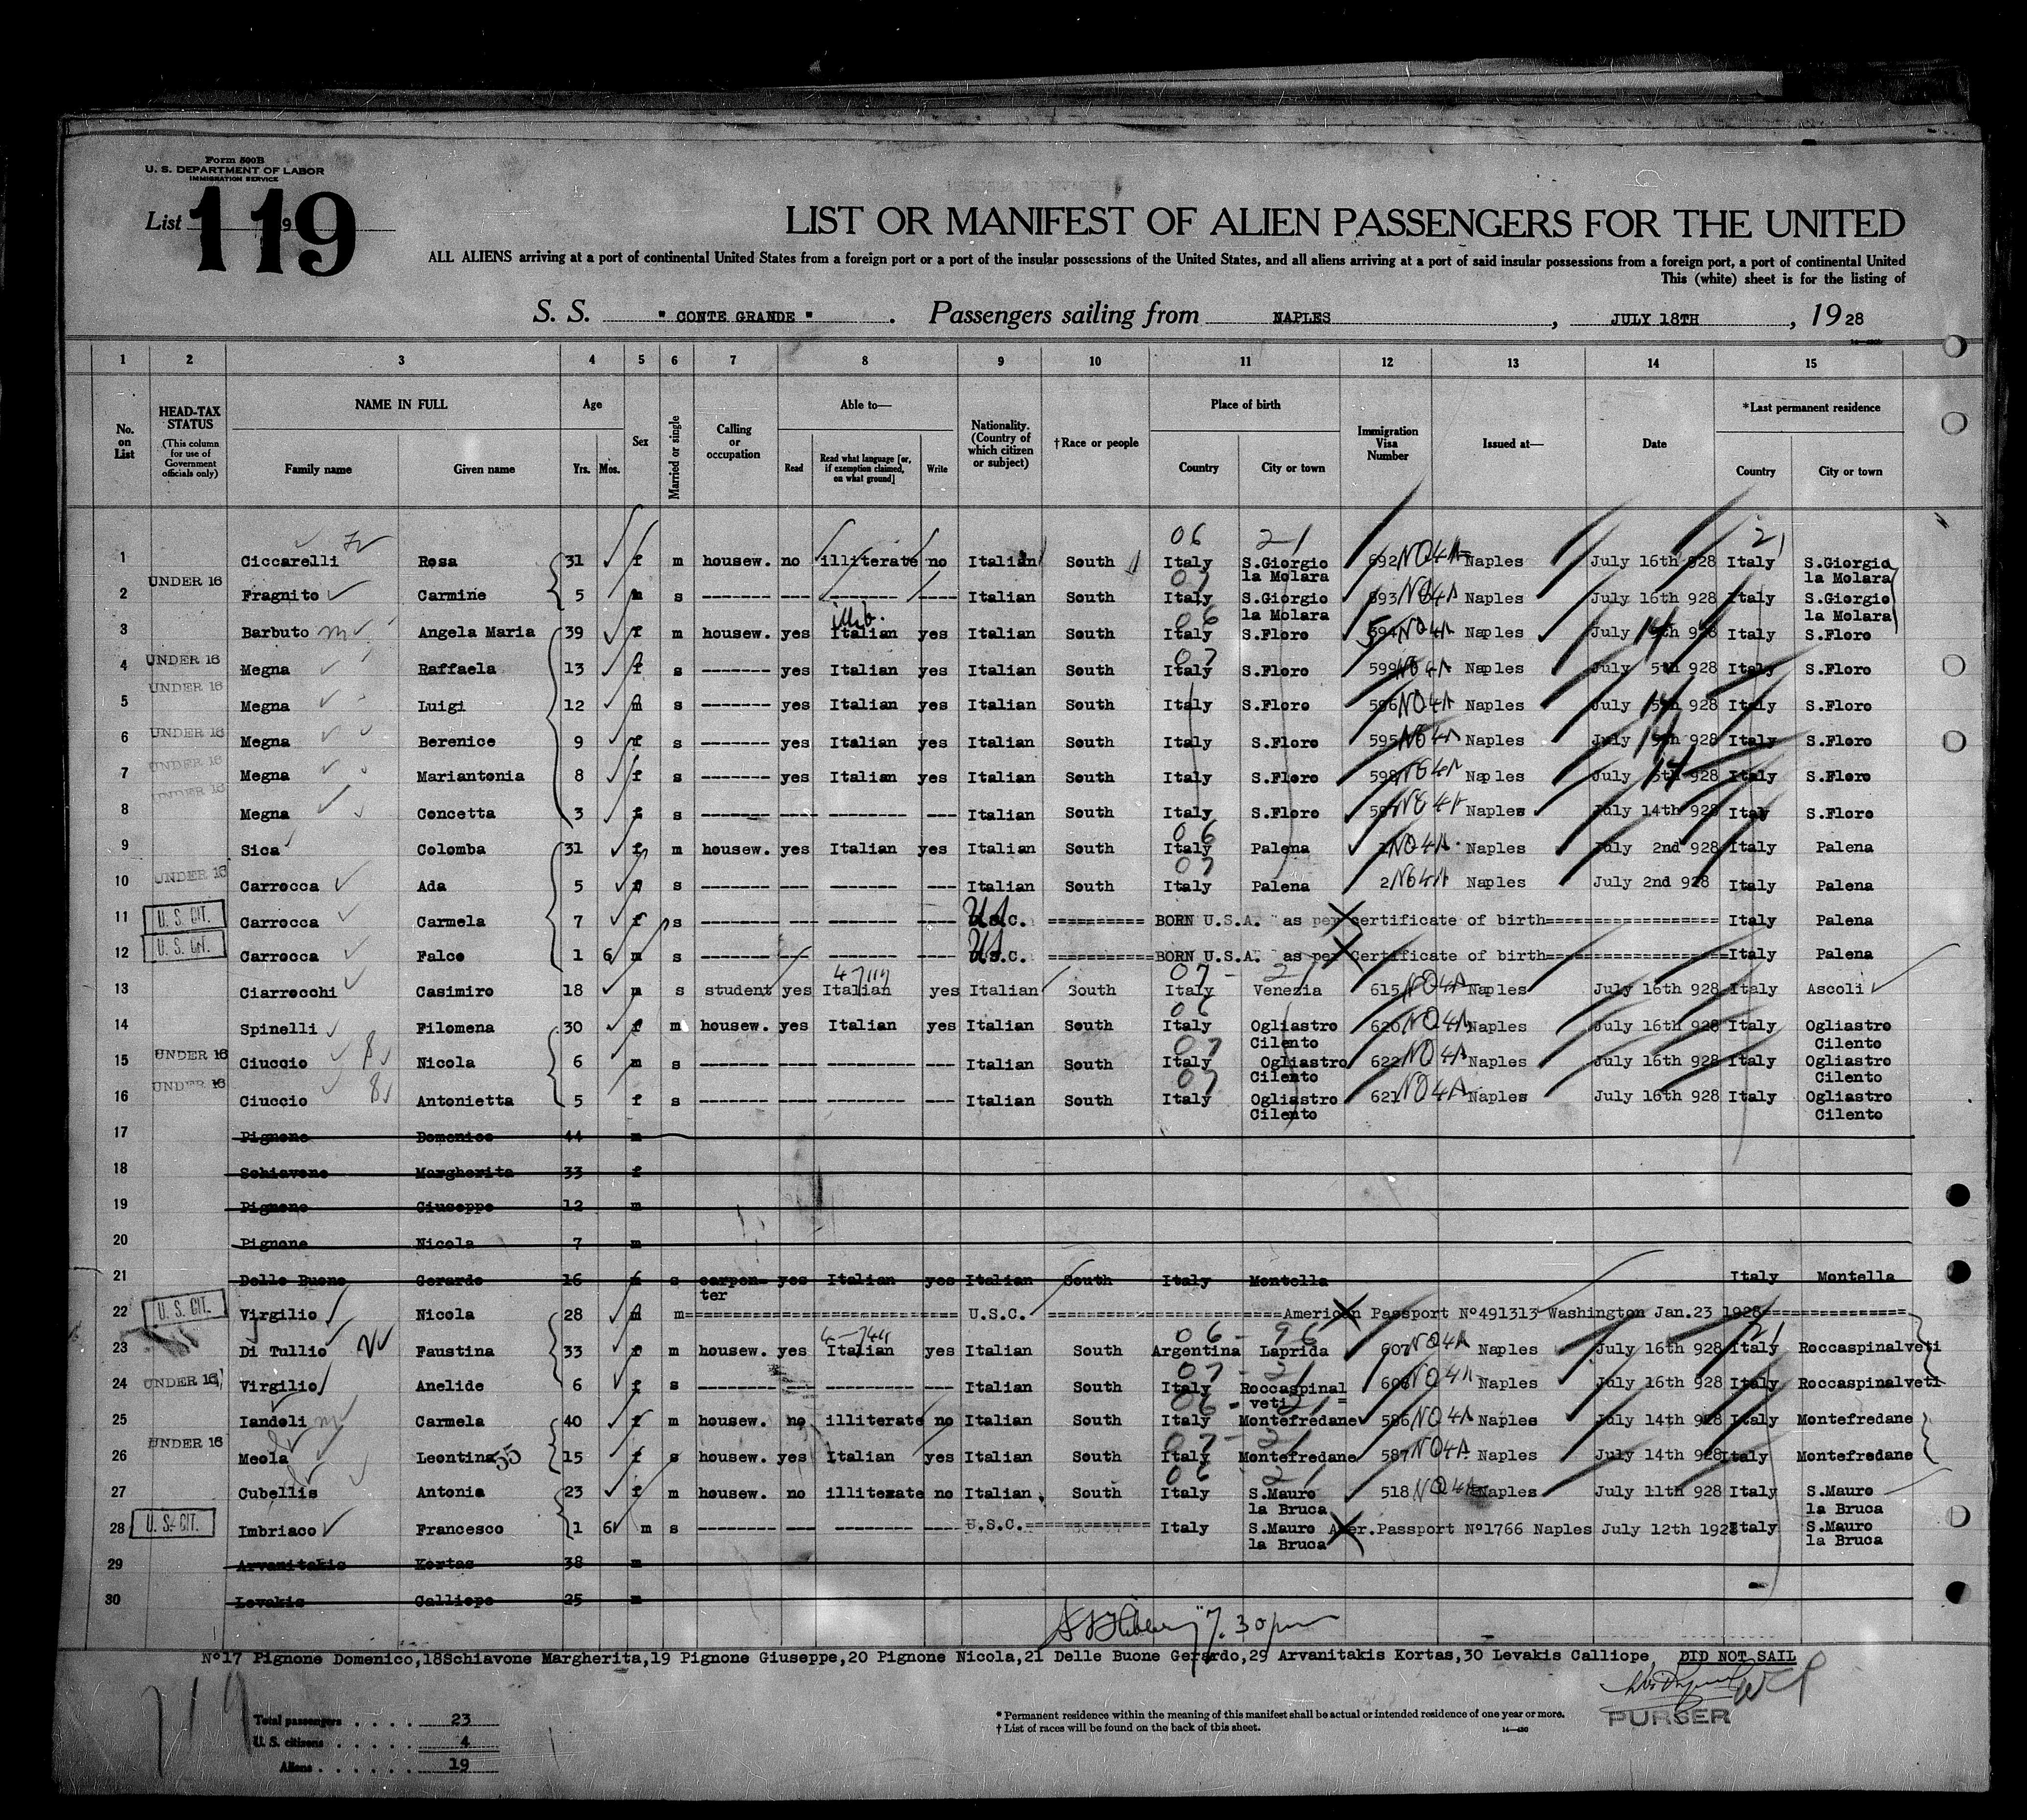 Form 500B
U. S. DEPARTMENT OF LABOR
IMMIGRATION SERVICE
List 119
LIST OR MANIFEST OF ALIEN PASSENGERS FOR THE UNITED
ALL ALIENS arriving at a port of continental United States from a foreign port or a port of the insular possessions of the United States, and all aliens arriving at a port of said insular possessions from a foreign port, a port of continental United
This (white) sheet is for the listing of
S. S. " CONTE GRANDE " . Passengers sailing from NAPLES , JULY 18TH , 1928
1 2 3 4 5 6 7 8 9 10 11 12 13 14 15
No. on List HEAD-TAX STATUS (This column for use of Government officials only) NAME IN FULL Family name Given name Age Yrs. Mos. Sex Married or single Calling or occupation Able to— Read Read what language [or, if exemption claimed, on what ground] Write Nationality. (Country of which citizen or subject) †Race or people Place of birth Country City or town Immigration Visa Number Issued at— Date *Last permanent residence Country City or town
06 21 21
1 Ciccarelli Rosa 31 f m housew. no illiterate no Italian South Italy S.Giorgio la Molara 692 NQ4A Naples July 16th 928 Italy S.Giorgio la Molara
2 UNDER 16 Fragnito Carmine 5 m s Italian South Italy S.Giorgio la Molara 693 NQ4A Naples July 16th 928 Italy S.Giorgio la Molara
3 Barbuto Angela Maria 39 f m housew. yes Italian yes Italian South Italy S.Floro 594 NQ4A Naples July 14th 928 Italy S.Floro
4 UNDER 16 Megna Raffaela 13 f s ------- yes Italian yes Italian South Italy S.Floro 599 NQ4A Naples July 5th 928 Italy S.Floro
5 UNDER 16 Megna Luigi 12 m s ------- yes Italian yes Italian South Italy S.Floro 596 NQ4A Naples July 14 928 Italy S.Floro
6 UNDER 16 Megna Berenice 9 f s ------- yes Italian yes Italian South Italy S.Floro 595 NQ4A Naples July 14 928 Italy S.Floro
7 UNDER 16 Megna Mariantonia 8 f s ------- yes Italian yes Italian South Italy S.Floro 598 NQ4A Naples July 14 928 Italy S.Floro
8 UNDER 16 Megna Concetta 3 f s Italian South Italy S.Floro 597 NQ4A Naples July 14th 928 Italy S.Floro
9 Sica Colomba 31 f m housew. yes Italian yes Italian South Italy Palena 1 NQ4A Naples July 2nd 928 Italy Palena
10 UNDER 16 Carrocca Ada 5 f s Italian South Italy Palena 2 NQ4A Naples July 2nd 928 Italy Palena
11 U. S. CIT. Carrocca Carmela 7 f s U.S.C. BORN U.S.A. as per certificate of birth Italy Palena
12 U. S. CIT. Carrocca Falco 1 6 m s U.S.C. BORN U.S.A. as per Certificate of birth Italy Palena
13 Ciarrocchi Casimiro 18 m s student yes Italian yes Italian South Italy Venezia 615 NQ4A Naples July 16th 928 Italy Ascoli
14 Spinelli Filomena 30 f m housew. yes Italian yes Italian South Italy Ogliastro Cilento 620 NQ4A Naples July 16th 928 Italy Ogliastro Cilento
15 UNDER 16 Ciuccio Nicola 6 m s Italian South Italy Ogliastro Cilento 622 NQ4A Naples July 16th 928 Italy Ogliastro Cilento
16 UNDER 16 Ciuccio Antonietta 5 f s Italian South Italy Ogliastro Cilento 621 NQ4A Naples July 16th 928 Italy Ogliastro Cilento
17 Pignone Domenico 44 m
18 Schiavone Margherita 33 f
19 Pignone Giuseppe 12 m
20 Pignone Nicola 7 m
21 Delle Buone Gerardo 16 m s carpenter yes Italian yes Italian South Italy Montella Italy Montella
22 U. S. CIT. Virgilio Nicola 28 m m U.S.C. American Passport N°491313 Washington Jan.23 1928
23 Di Tullio Faustina 33 f m housew. yes Italian yes Italian South Argentina Laprida 607 NQ4A Naples July 16th 928 Italy Roccaspinalveti
24 UNDER 16 Virgilio Anelide 6 f s Italian South Italy Roccaspinalveti 608 NQ4A Naples July 16th 928 Italy Roccaspinalveti
25 Iandoli Carmela 40 f m housew. no illiterate no Italian South Italy Montefredane 586 NQ4A Naples July 14th 928 Italy Montefredane
26 UNDER 16 Meola Leontina 15 f s housew. yes Italian yes Italian South Italy Montefredane 587 NQ4A Naples July 14th 928 Italy Montefredane
27 Cubellis Antonia 23 f m housew. no illiterate no Italian South Italy S.Mauro la Bruca 518 NQ4A Naples July 11th 928 Italy S.Mauro la Bruca
28 U. S. CIT. Imbriaco Francesco 1 6 m s U.S.C. Italy S.Mauro la Bruca Amer.Passport N°1766 Naples July 12th 1928 Italy S.Mauro la Bruca
29 Arvanitakis Kortas 38 m
30 Levakis Calliope 25 m
7.30pm
N°17 Pignone Domenico,18Schiavone Margherita,19 Pignone Giuseppe,20 Pignone Nicola,21 Delle Buone Gerardo,29 Arvanitakis Kortas,30 Levakis Calliope, DID NOT SAIL
PURSER
119
Total passengers . . . . 23
U. S. citizens . . . . . 4
Aliens . . . . . . 19
* Permanent residence within the meaning of this manifest shall be actual or intended residence of one year or more.
† List of races will be found on the back of this sheet.